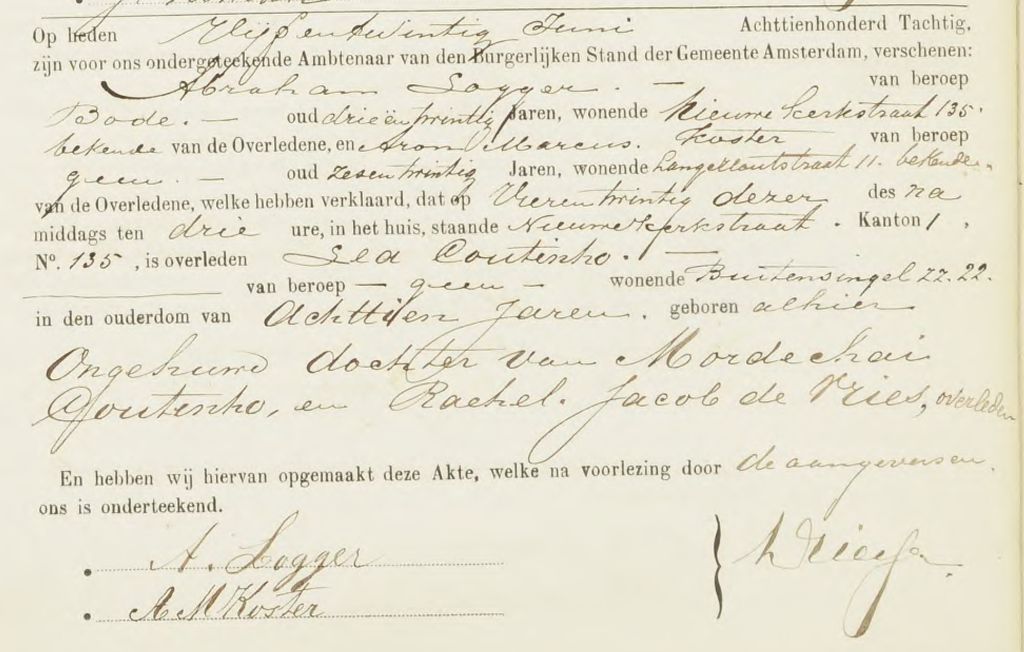 Op heden Vijfentwintig Juni Achttienhonderd Tachtig,
zijn voor ons ondergeteekende Ambtenaar van den Burgerlijken Stand der Gemeente Amsterdam, verschenen:
Abraham Logger. — van beroep
Bode. — oud drieëntwintig Jaren, wonende Nieuwe Kerkstraat 135.
bekende van de Overledene, en Aron Marcus Koster van beroep
geen. — oud Zesentwintig Jaren, wonende Lange Houtstraat 11. bekende
van de Overledene, welke hebben verklaard, dat op Vierentwintig dezer des na
middags ten drie ure, in het huis, staande Nieuwe Kerkstraat. Kanton 1,
No. 135, is overleden Lea Coutinho. —
van beroep — geen — wonende Buitensingel ZZ. 22.
in den ouderdom van Achttien Jaren. geboren alhier
Ongehuwd dochter van Mordechai
Coutinho, en Rachel Jacob de Vries, overleden
En hebben wij hiervan opgemaakt deze Akte, welke na voorlezing door de aangevers en
ons is onderteekend.
A. Logger
A M Koster